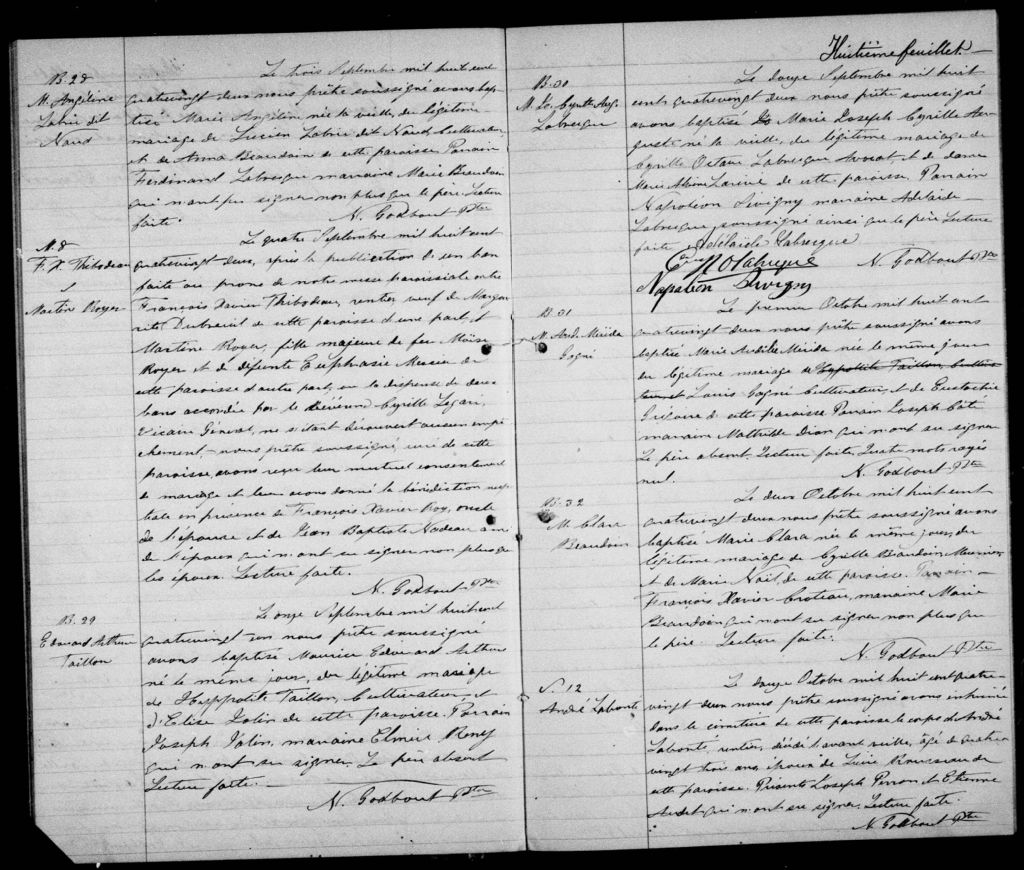 B. 28
M. Angéline
Labrie dit
Naud
Le trois Septembre mil huit cent
quatrevingt deux nous prêtre soussigné avons bap
tisé Marie Angéline née la veille, du légitime
mariage de Lucien Labrie dit Naud, Cultivateur
et de Anna Beaudoin de cette paroisse Parrain
Ferdinand Labrecque marraine Marie Beaudoin
qui n'ont pu signer non plus que le père. Lecture
faite.
N. Godbout Ptre
M. 8
F. X. Thibodeau
&
Martine Royer
Le quatre Septembre mil huit cent
quatrevingt deux, après la publication d'un ban
faite au prone de notre messe paroissiale entre
François Xavier Thibodeau, rentier veuf de Margue
rite Dutreuil de cette paroisse d'une part, et
Martine Royer, fille majeure de feu Moïse
Royer et de défunte Euphrasie Mercier de
cette paroisse d'autre part, vu la dispense de deux
bans accordée par le Révérend Cyrille Légaré,
Vicaire Général, ne s'étant découvert aucun empê
chement nous prêtre soussigné, curé de cette
paroisse, avons reçu leur mutuel consentement
de mariage et leur avons donné la bénédiction nup
tiale en présence de François Xavier Roy, oncle
de l'épouse et de Jean Baptiste Nadeau ami
de l'époux qui n'ont su signer non plus que
les époux. Lecture faite.
N. Godbout Ptre
B. 29
Edouard Arthur
Taillon
Le onze Septembre mil huit cent
quatrevingt deux nous prêtre soussigné
avons baptisé Maurice Edouard Arthur
né le même jour, du légitime mariage
de Hyppolite Taillon, Cultivateur et
d'Elise Jalin de cette paroisse. Parrain
Joseph Jalin, marraine Elmire
qui n'ont su signer. Le père absent
Lecture faite.
N. Godbout Ptre
Huitième feuillet.
B. 30
M. Jos. Cyrille Aug.
Labrecque
Le douze Septembre mil huit
cent quatrevingt deux nous prêtre soussigné
avons baptisé Marie Joseph Cyrille Au
guste né la veille, du légitime mariage de
Cyrille Octave Labrecque Avocat et de dame
Marie de cette paroisse. Parrain
Napoléon Sévigny marraine Adélaïde
Labrecque soussignés ainsi que le père Lecture
faite
Adélaïde Labrecque
Labrecque
N. Godbout Ptre
Napoléon Sévigny
B. 31
M. Mérida
Gagné
Le premier Octobre mil huit cent
quatrevingt deux nous prêtre soussigné avons
baptisé Marie Mérida née le même jour
du légitime mariage de Hyppolite Taillon, Cultiva
teur et Louis Gagné Cultivateur, et de Eustachie
Grégoire de cette paroisse Parrain Joseph Coté
marraine Mathilde Dion qui n'ont su signer
Le père absent. Lecture faite. Quatre mots rayés
nul.
N. Godbout Ptre
B. 32
M. Clara
Beaudoin
Le deux Octobre mil huit cent
quatrevingt deux nous prêtre soussigné avons
baptisé Marie Clara née le même jour, du
légitime mariage de Cyrille Beaudoin Meunier
et de Marie Noël, de cette paroisse. Parrain
François Xavier Croteau, marraine Marie
Beaudoin qui n'ont su signer non plus que
le père. Lecture faite.
N. Godbout Ptre
S. 12
André Labonté
Le douze Octobre mil huit cent quatre
vingt deux nous prêtre soussigné avons inhumé
dans le cimetière de cette paroisse le corps de André
Labonté, rentier, décédé l'avant veille, âgé de quatre
vingt trois ans, époux de Rousseau de
cette paroisse. Présents Joseph Perron et Etienne
Audet qui n'ont su signer. Lecture faite.
N. Godbout Ptre